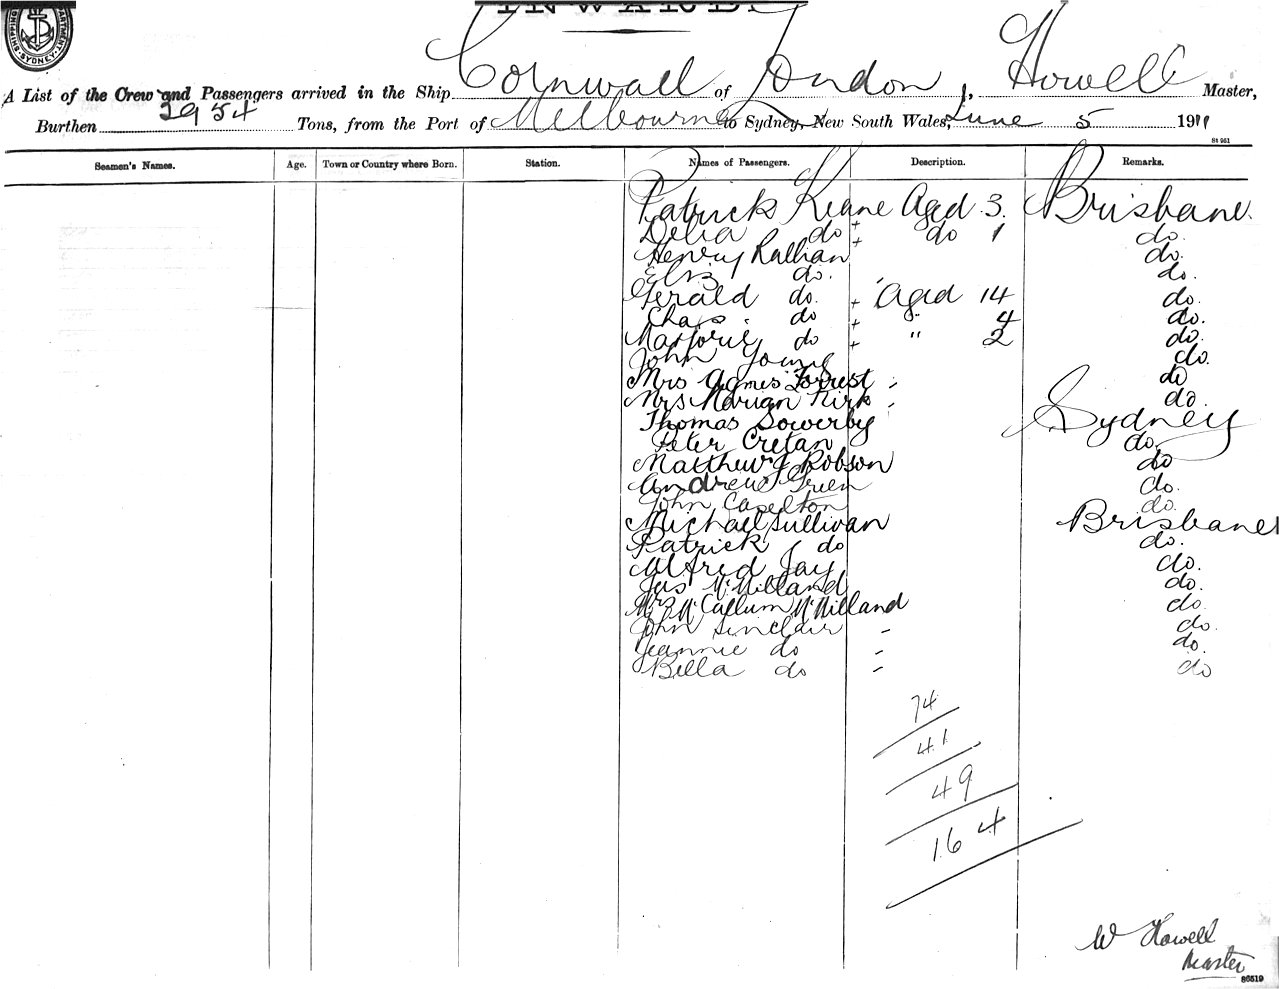 INWARDS
SHIPPING DEPARTMENT SYDNEY
A List of the Crew and Passengers arrived in the Ship Cornwall of London, Howell Master,
Burthen 2954 Tons, from the Port of Melbourne to Sydney, New South Wales, June 5 1911
St 961
Seamen's Names. Age. Town or Country where Born. Station. Names of Passengers. Description. Remarks.
Patrick Keane Aged 3. Brisbane.
Delia do + do 1 do.
Henry Kalhan + do.
Eliz do. do.
Gerald do. + Aged 14 do.
Chas. do + " 4 do.
Marjorie do + " 2 do.
John Young do.
Mrs Agnes Forrest - do
Mrs Marian Kirk - do.
Thomas Sowerby Sydney
Peter Cretan do.
Matthew J Robson do
Andrew Green do.
John Caselton do.
Michael Sullivan Brisbane
Patrick do do.
Alfred Jay do.
Jas McMilland do.
Mrs McCallum McMilland do.
John Sinclair - do.
Jeannie do - do.
Bella do - do
74
41
49
164
W Howell
Master
86519